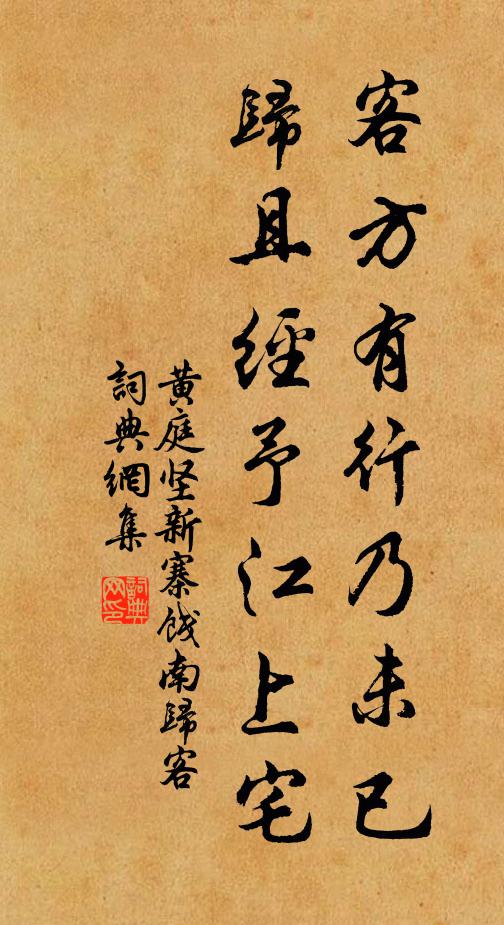 客方有行乃未已
歸且經予江上宅
黄庭坚新寨饯南歸客
詞典網集
詞典网印